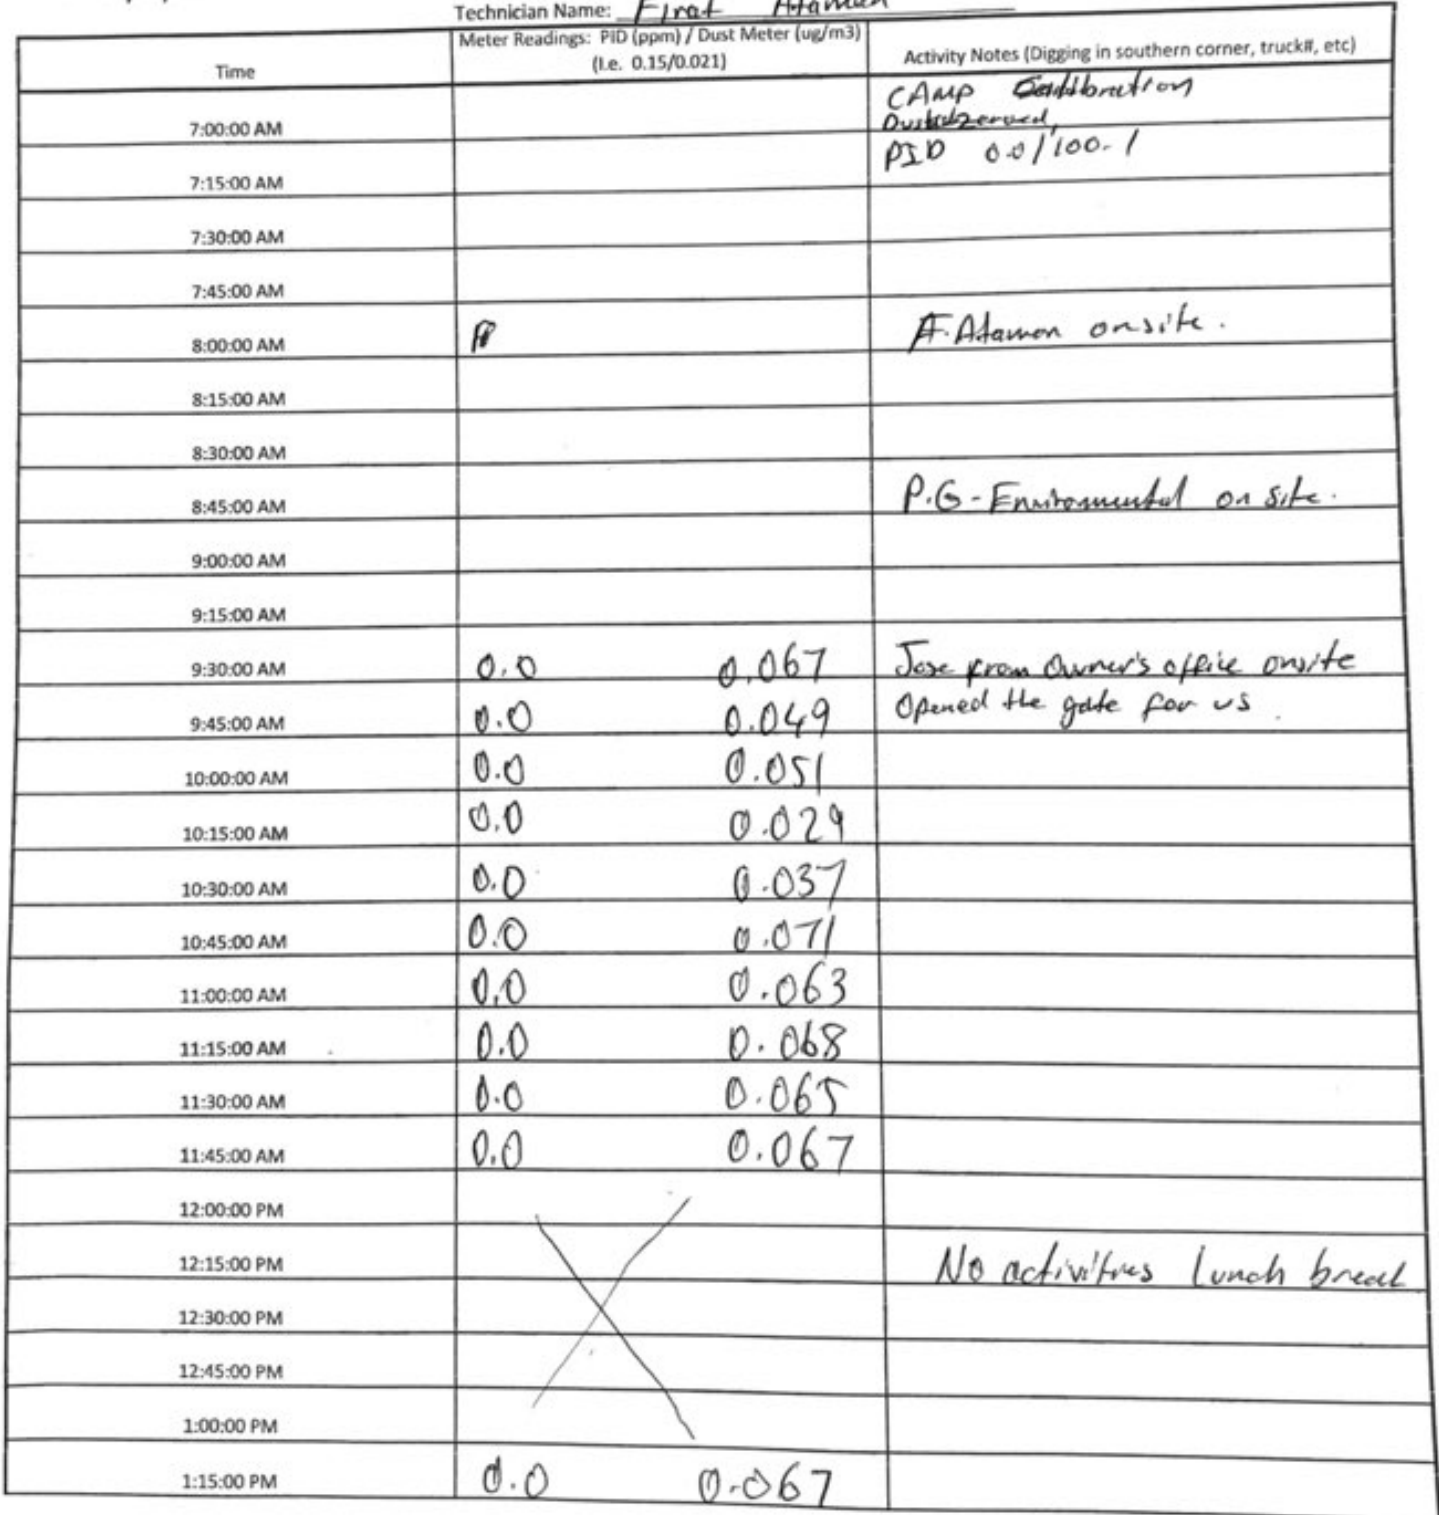 Technician Name: Firat Ataman
Time
Meter Readings: PID (ppm) / Dust Meter (ug/m3)
(I.e. 0.15/0.021)
Activity Notes (Digging in southern corner, truck#, etc)
7:00:00 AM CAMP Calibration
zeroed,
7:15:00 AM PID 0.0/100.1
7:30:00 AM
7:45:00 AM
8:00:00 AM F. Ataman onsite.
8:15:00 AM
8:30:00 AM
8:45:00 AM P.G-Enviromental on site.
9:00:00 AM
9:15:00 AM
9:30:00 AM 0.0 0.067 Jose from Owner's office onsite
9:45:00 AM 0.0 0.049 Opened the gate for us.
10:00:00 AM 0.0 0.051
10:15:00 AM 0.0 0.029
10:30:00 AM 0.0 0.037
10:45:00 AM 0.0 0.071
11:00:00 AM 0.0 0.063
11:15:00 AM 0.0 0.068
11:30:00 AM 0.0 0.065
11:45:00 AM 0.0 0.067
12:00:00 PM
12:15:00 PM No activities lunch break
12:30:00 PM
12:45:00 PM
1:00:00 PM
1:15:00 PM 0.0 0.067